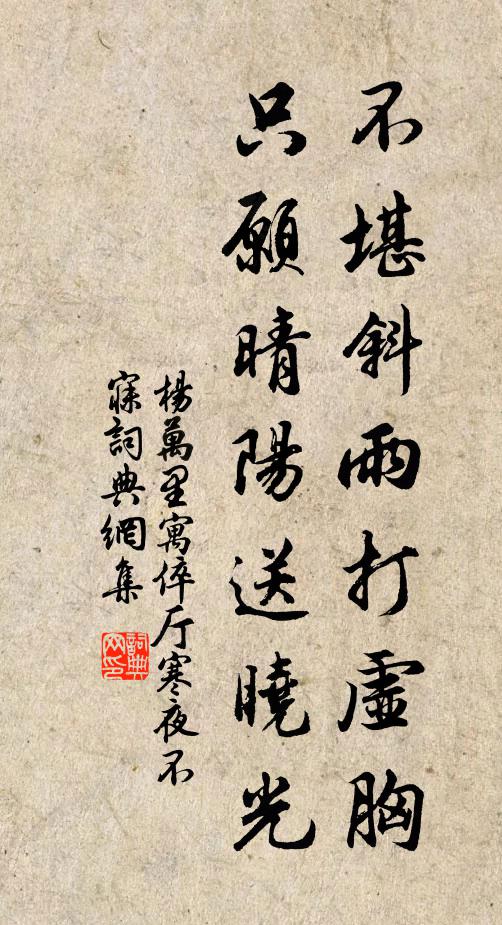 不堪斜雨打虛胸
只願晴陽送曉光
楊萬里寓倅厅寒夜不
寐詞典網集
詞典
网印